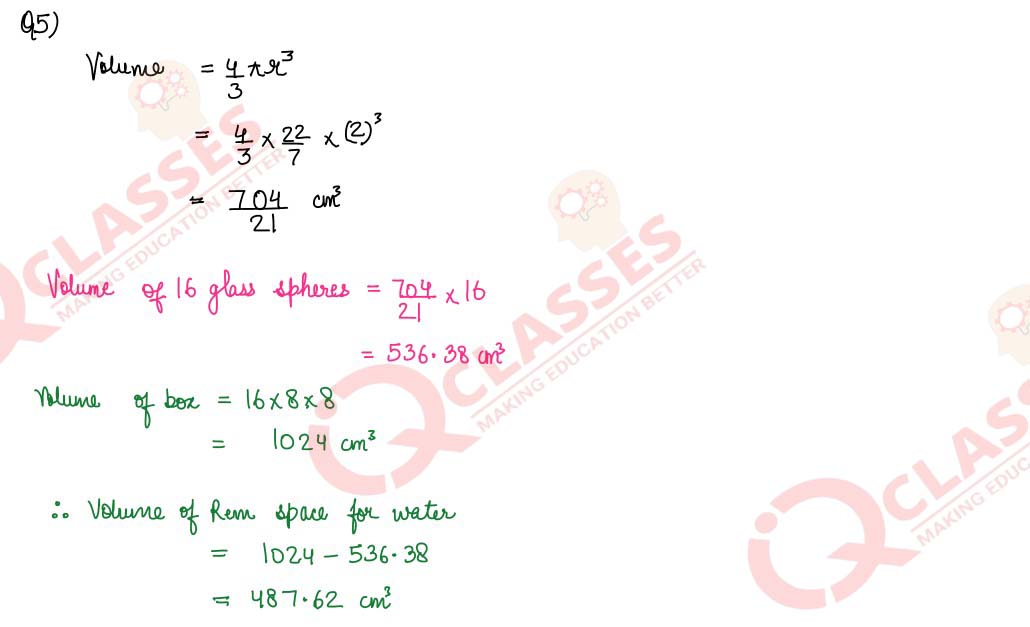 Q5)
Volume = 4/3 πr³
= 4/3 × 22/7 × (2)³
= 704/21 cm³
Volume of 16 glass spheres = 704/21 × 16
= 536.38 cm³
Volume of box = 16×8×8
= 1024 cm³
∴ Volume of Rem space for water
= 1024 - 536.38
= 487.62 cm³
CLASSES
MAKING EDUCATION BETTER
CLASSES
MAKING EDUCATION BETTER
CLASSES
MAKING EDUC